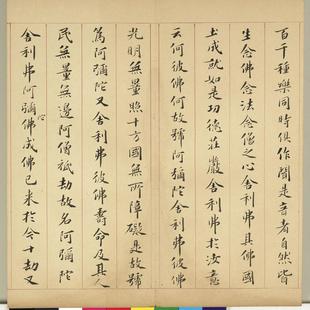 百千種樂同時俱作聞是音者自然皆
生念佛念法念僧之心舍利弗其佛國
土成就如是功德莊嚴舍利弗於汝意
云何彼佛何故號阿彌陀舍利弗彼佛
光明無量照十方國無所障礙是故號
為阿彌陀又舍利弗彼佛壽命及其人
民無量無邊阿僧祇劫故名阿彌陀
舍利弗阿彌佛成佛已來於今十劫又